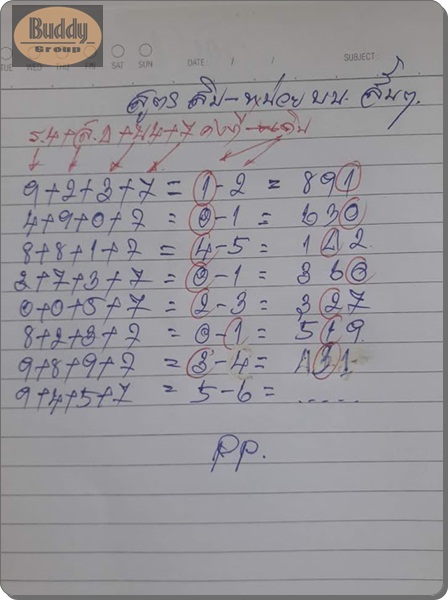 Buddy
Group
TUE WED THU FRI SAT SUN DATE / / SUBJECT:
สูตร สิบ-หน่วย บน. สั้นๆ.
9+2+3+7 = 1-2 = 891
4+9+0+7 = 0-1 = 630
8+8+1+7 = 4-5 = 142
2+7+3+7 = 0-1 = 360
0+0+5+7 = 2-3 = 327
8+2+3+7 = 0-1 = 519
9+8+9+7 = 3-4 = 131
9+4+5+7 = 5-6 = .....
PP.